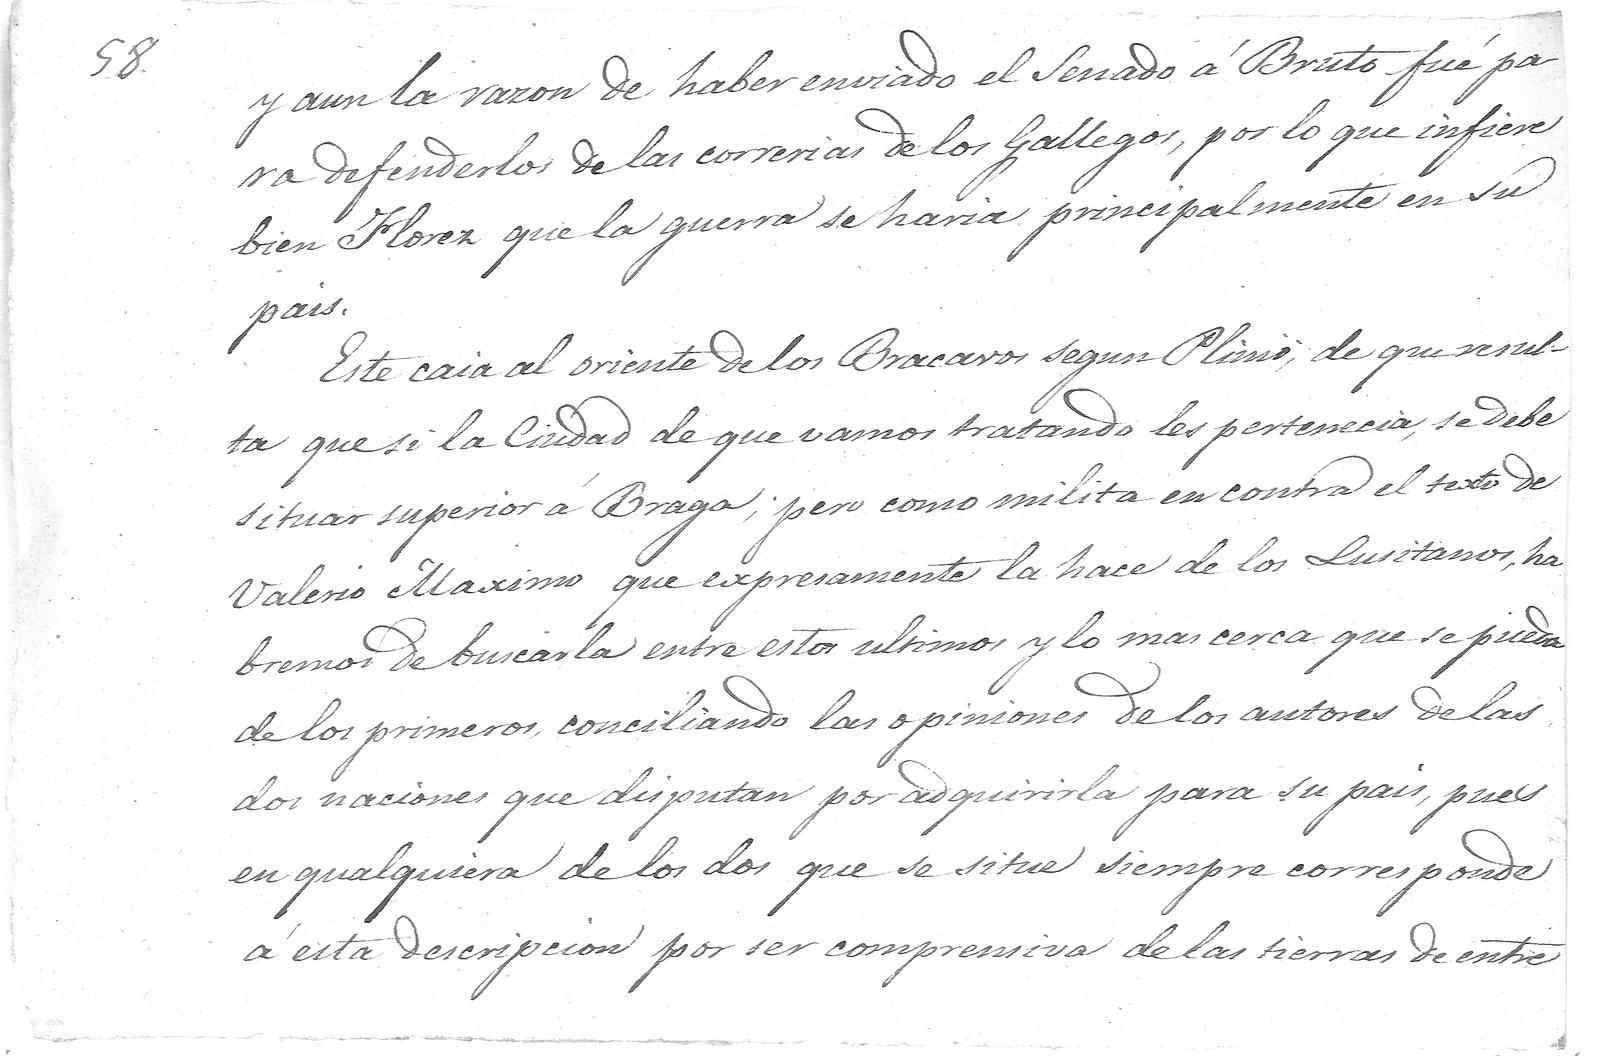 58.
y aun la razon de haber enviado el Senado á Bruto fué pa-
ra defenderlos de las correrias de los Gallegos, por lo que infiere
bien Florez que la guerra se haria principalmente en su
pais.
Este caia al oriente de los Bracaros segun Plinio, de que resul-
ta que si la Ciudad de que vamos tratando les pertenecia, se debe
situar superior á Braga; pero como milita en contra el texto de
Valerio Maximo que expresamente la hace de los Lusitanos, ha
bremos de buscarla entre estos ultimos y lo mas cerca que se pueda
de los primeros, conciliando las opiniones de los autores de las
dos naciones que disputan por adquirirla para su pais, pues
en qualquiera de los dos que se situe siempre corresponde
á esta descripcion por ser comprensiva de las tierras de entre